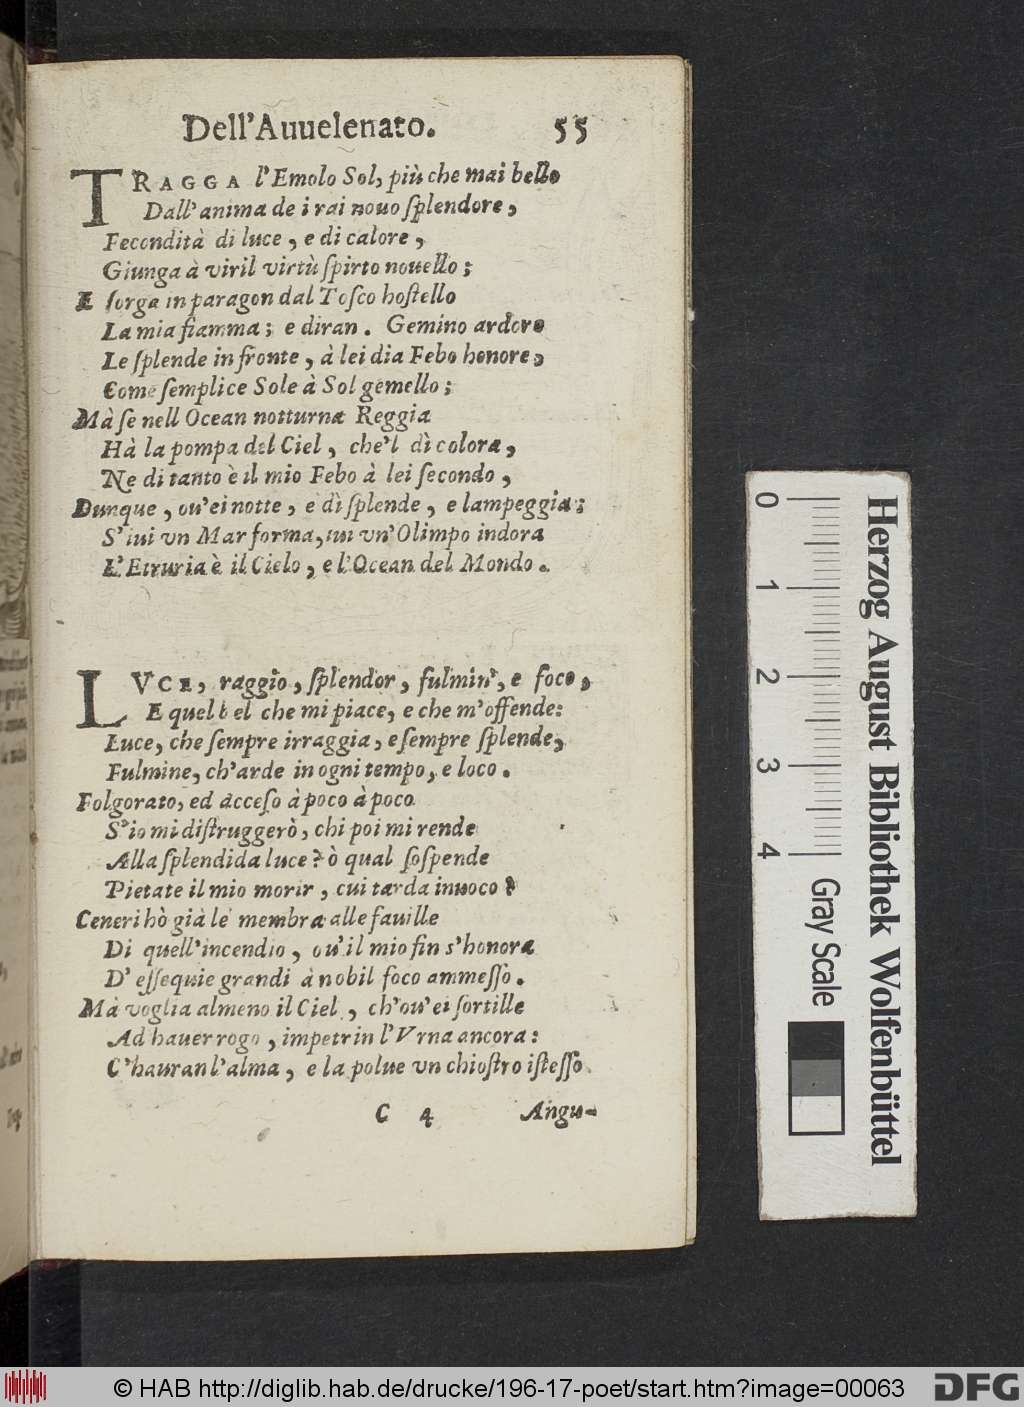 Dell'Auuelenato. 55
TRAGGA l'Emolo Sol, più che mai bello
Dall'anima de i rai nouo ſplendore,
Fecondità di luce, e di calore,
Giunga à viril virtù ſpirto nouello;
E ſorga in paragon dal Toſco hoſtello
La mia fiamma; e diran. Gemino ardore
Le ſplende in fronte, à lei dia Febo honore,
Come ſemplice Sole à Sol gemello;
Mà ſe nell Ocean notturna Reggia
Hà la pompa del Ciel, che'l dì colora,
Ne di tanto è il mio Febo à lei ſecondo,
Dunque, ou'ei notte, e dì ſplende, e lampeggia;
S'iui vn Mar forma, iui vn'Olimpo indora
L'Etruria è il Cielo, e l'Ocean del Mondo.
LVCE, raggio, ſplendor, fulmin', e foco,
E quel bel che mi piace, e che m'offende:
Luce, che ſempre irraggia, e ſempre ſplende,
Fulmine, ch'arde in ogni tempo, e loco.
Folgorato, ed acceſo à poco à poco
S'io mi diſtruggerò, chi poi mi rende
Alla ſplendida luce? ò qual ſoſpende
Pietate il mio morir, cui tarda inuoco?
Ceneri hò già le membra alle fauille
Di quell'incendio, ou'il mio fin s'honora
D'eſſequie grandi à nobil foco ammeſſo.
Mà voglia almeno il Ciel, ch'ou'ei ſortille
Ad hauer rogo, impetrin l'Vrna ancora:
C'hauran l'alma, e la polue vn chioſtro iſteſſo.
C 4 Angu-
0 1 2 3 4
Gray Scale
Herzog August Bibliothek Wolfenbüttel
© HAB http://diglib.hab.de/drucke/196-17-poet/start.htm?image=00063
DFG